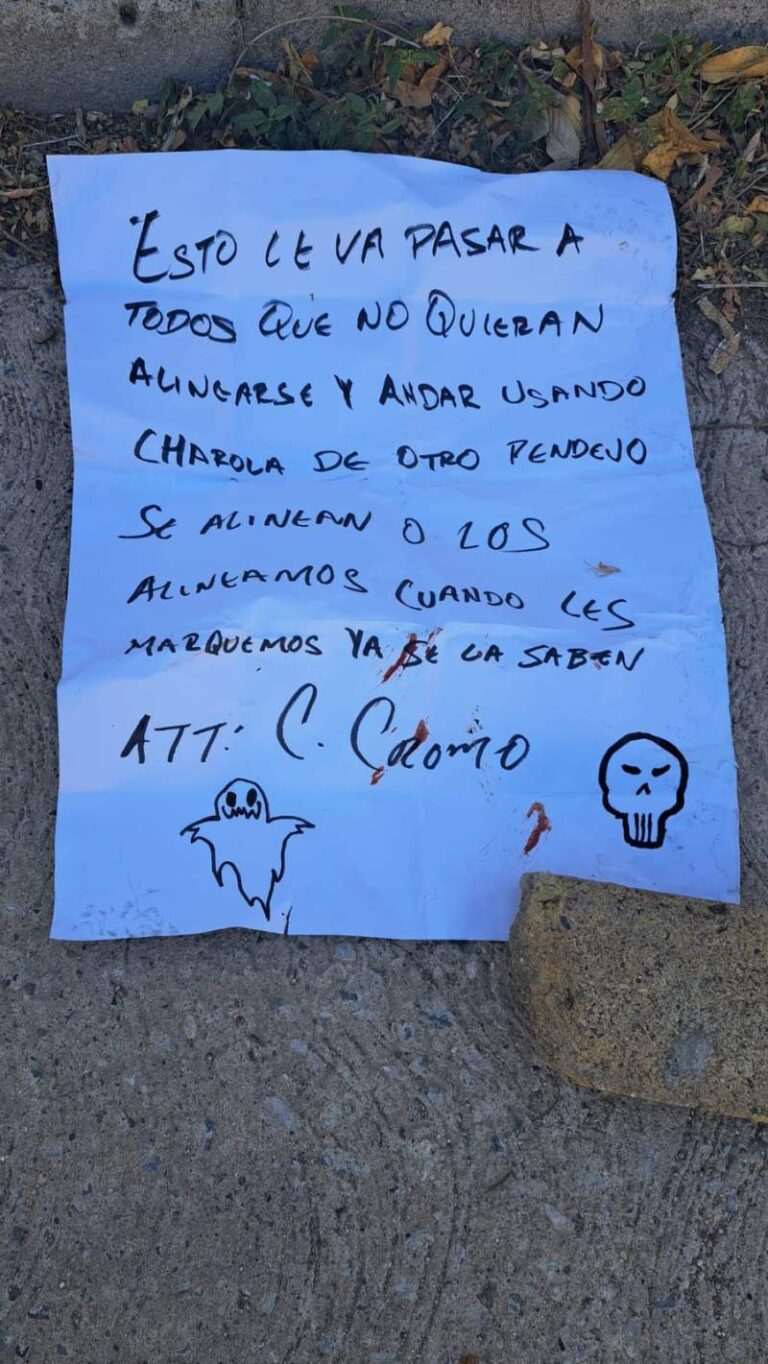 ESTO LE VA PASAR A
TODOS QUE NO QUIERAN
ALINEARSE Y ANDAR USANDO
CHAROLA DE OTRO PENDEJO
SE ALINEAN O LOS
ALINEAMOS CUANDO LES
MARQUEMOS YA SE LA SABEN
ATT: C. CROMO